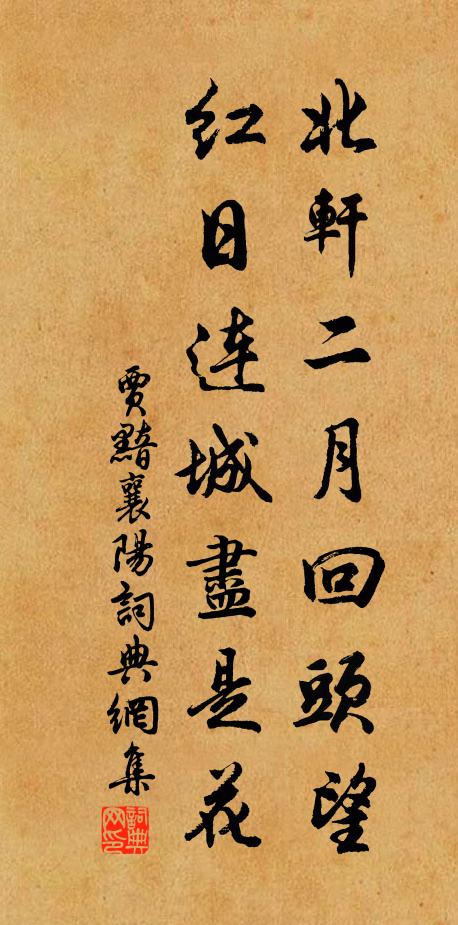 北軒二月回頭望
紅日連城盡是花
賈黯襄陽詞典網集
詞典
网印